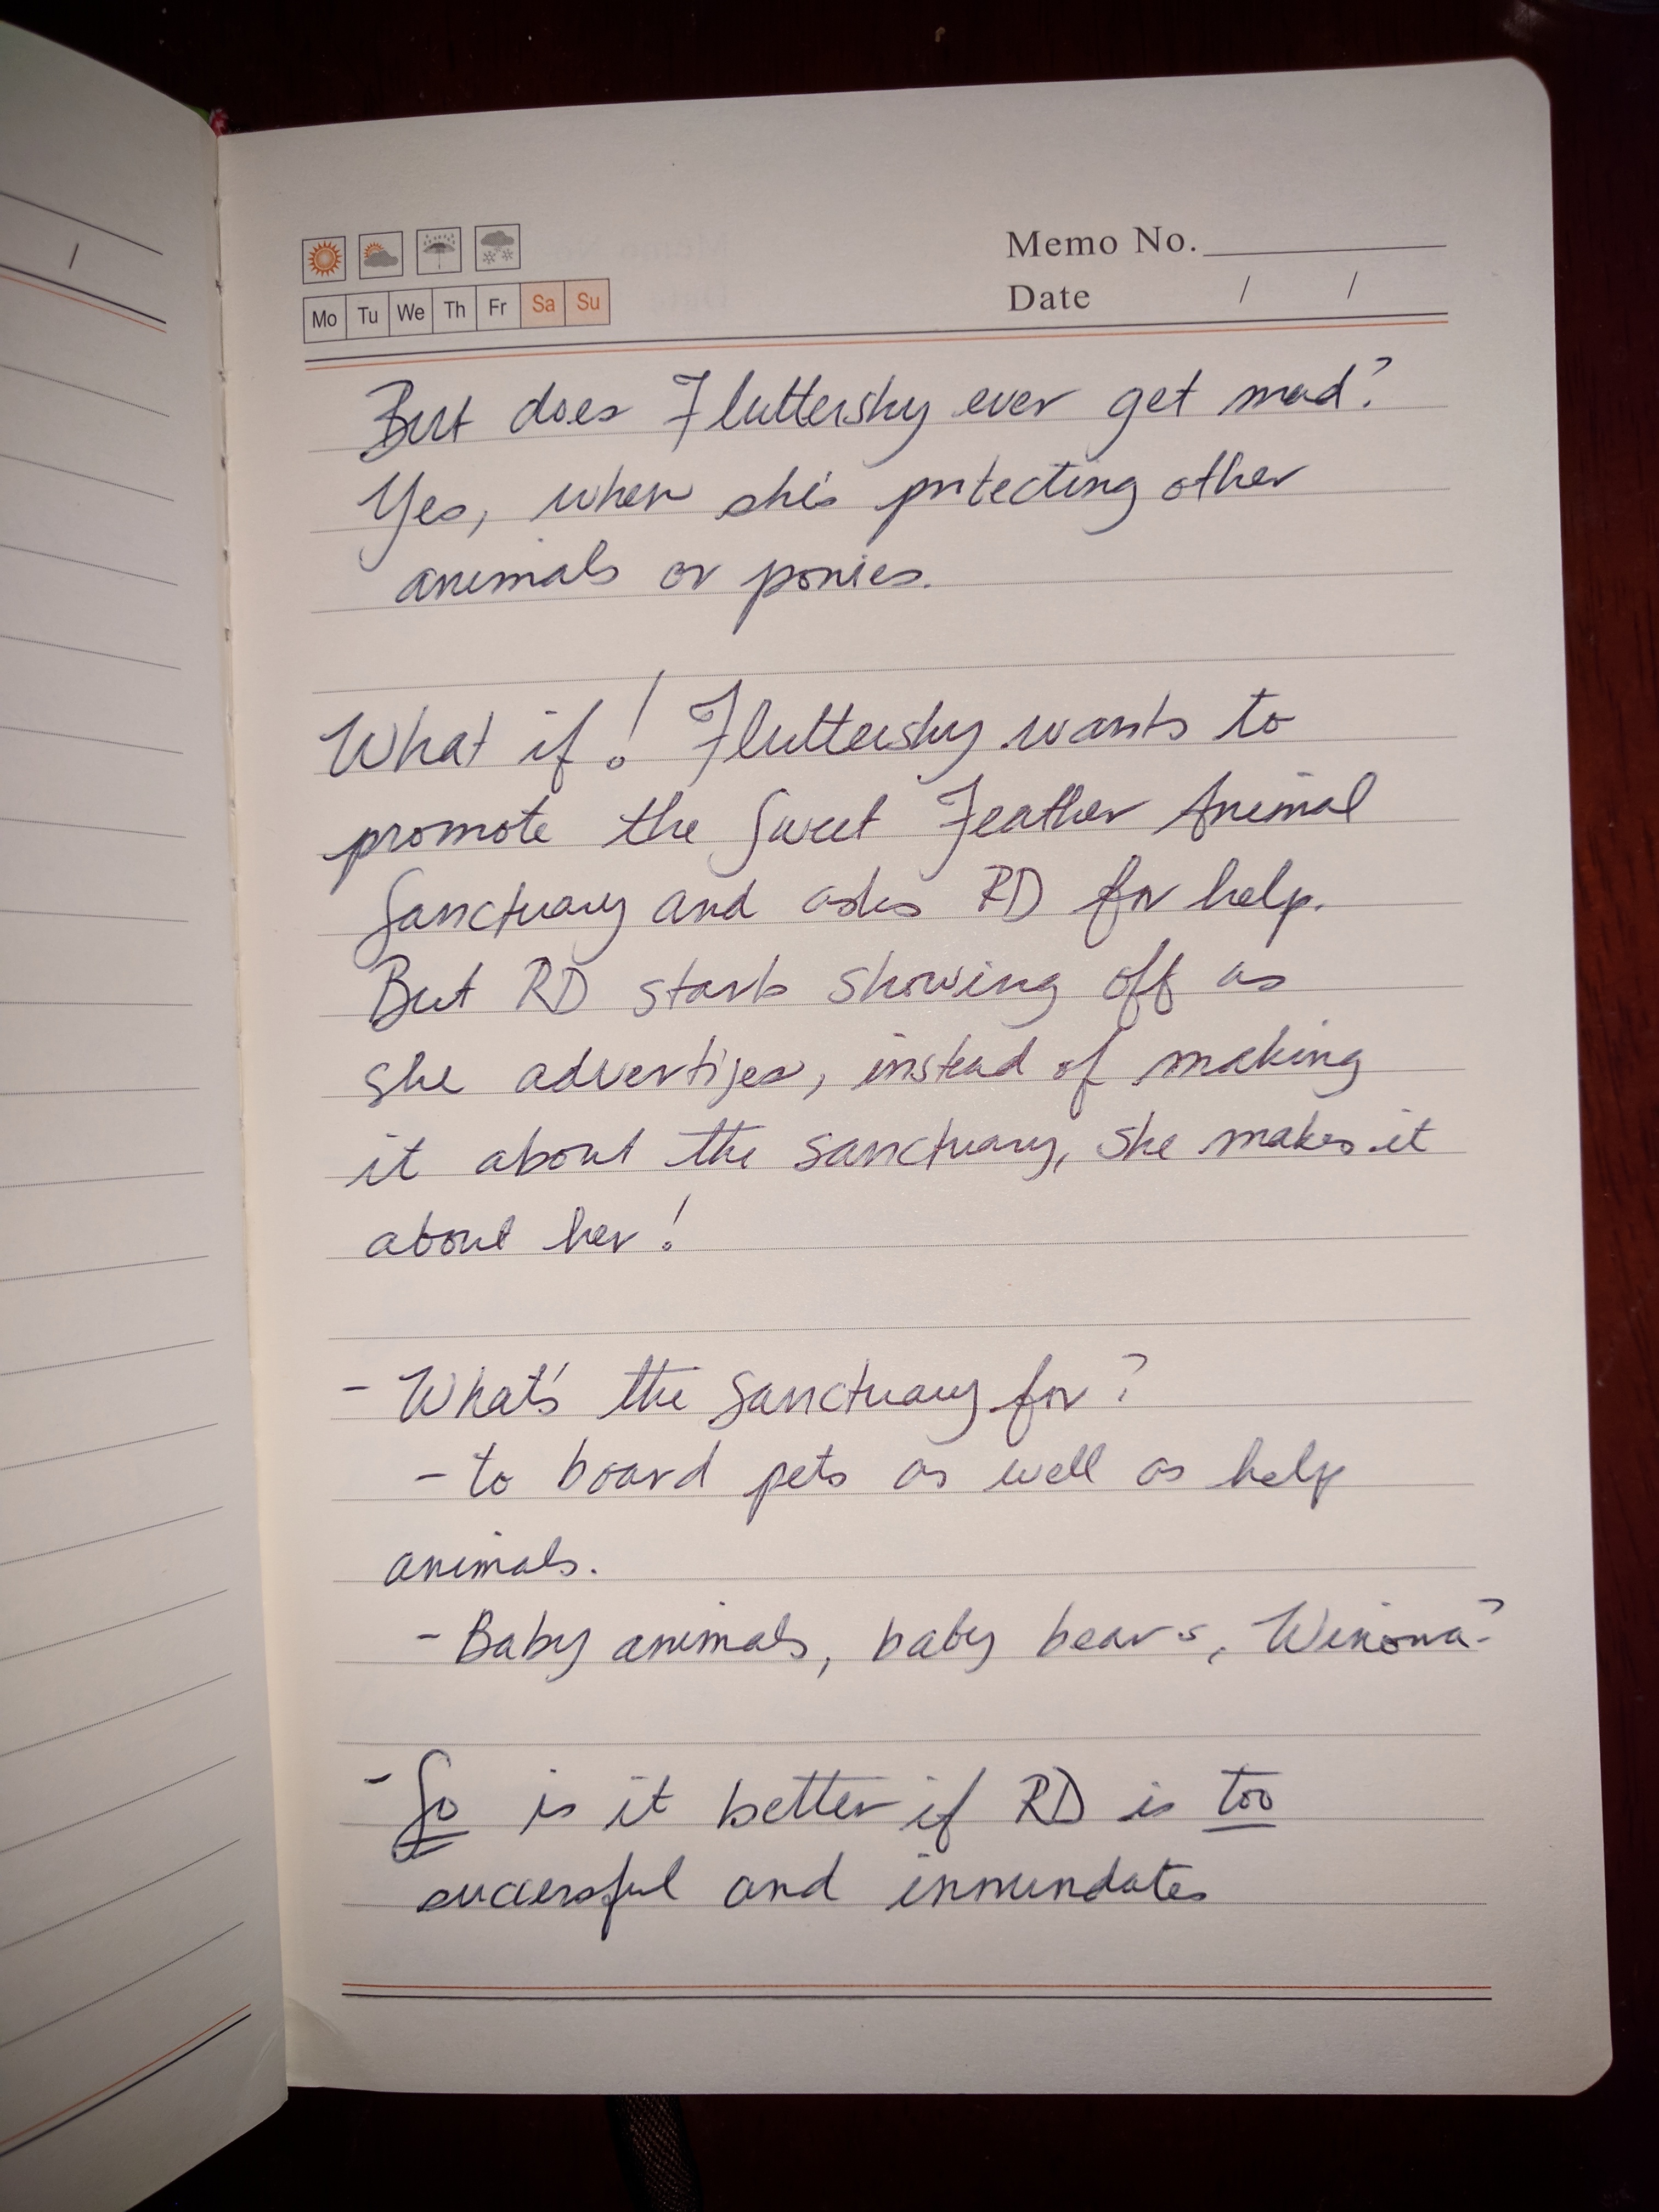 Memo No.
Mo Tu We Th Fr Sa Su
Date / /
But does Fluttershy ever get mad?
Yes, when she's protecting other
animals or ponies.
What if! Fluttershy wants to
promote the Sweet Feather Animal
Sanctuary and asks RD for help.
But RD starts showing off as
she advertises, instead of making
it about the sanctuary, she makes it
about her!
- What's the Sanctuary for?
- to board pets as well as help
animals.
- Baby animals, baby bears, Winona?
- So is it better if RD is too
successful and innundates